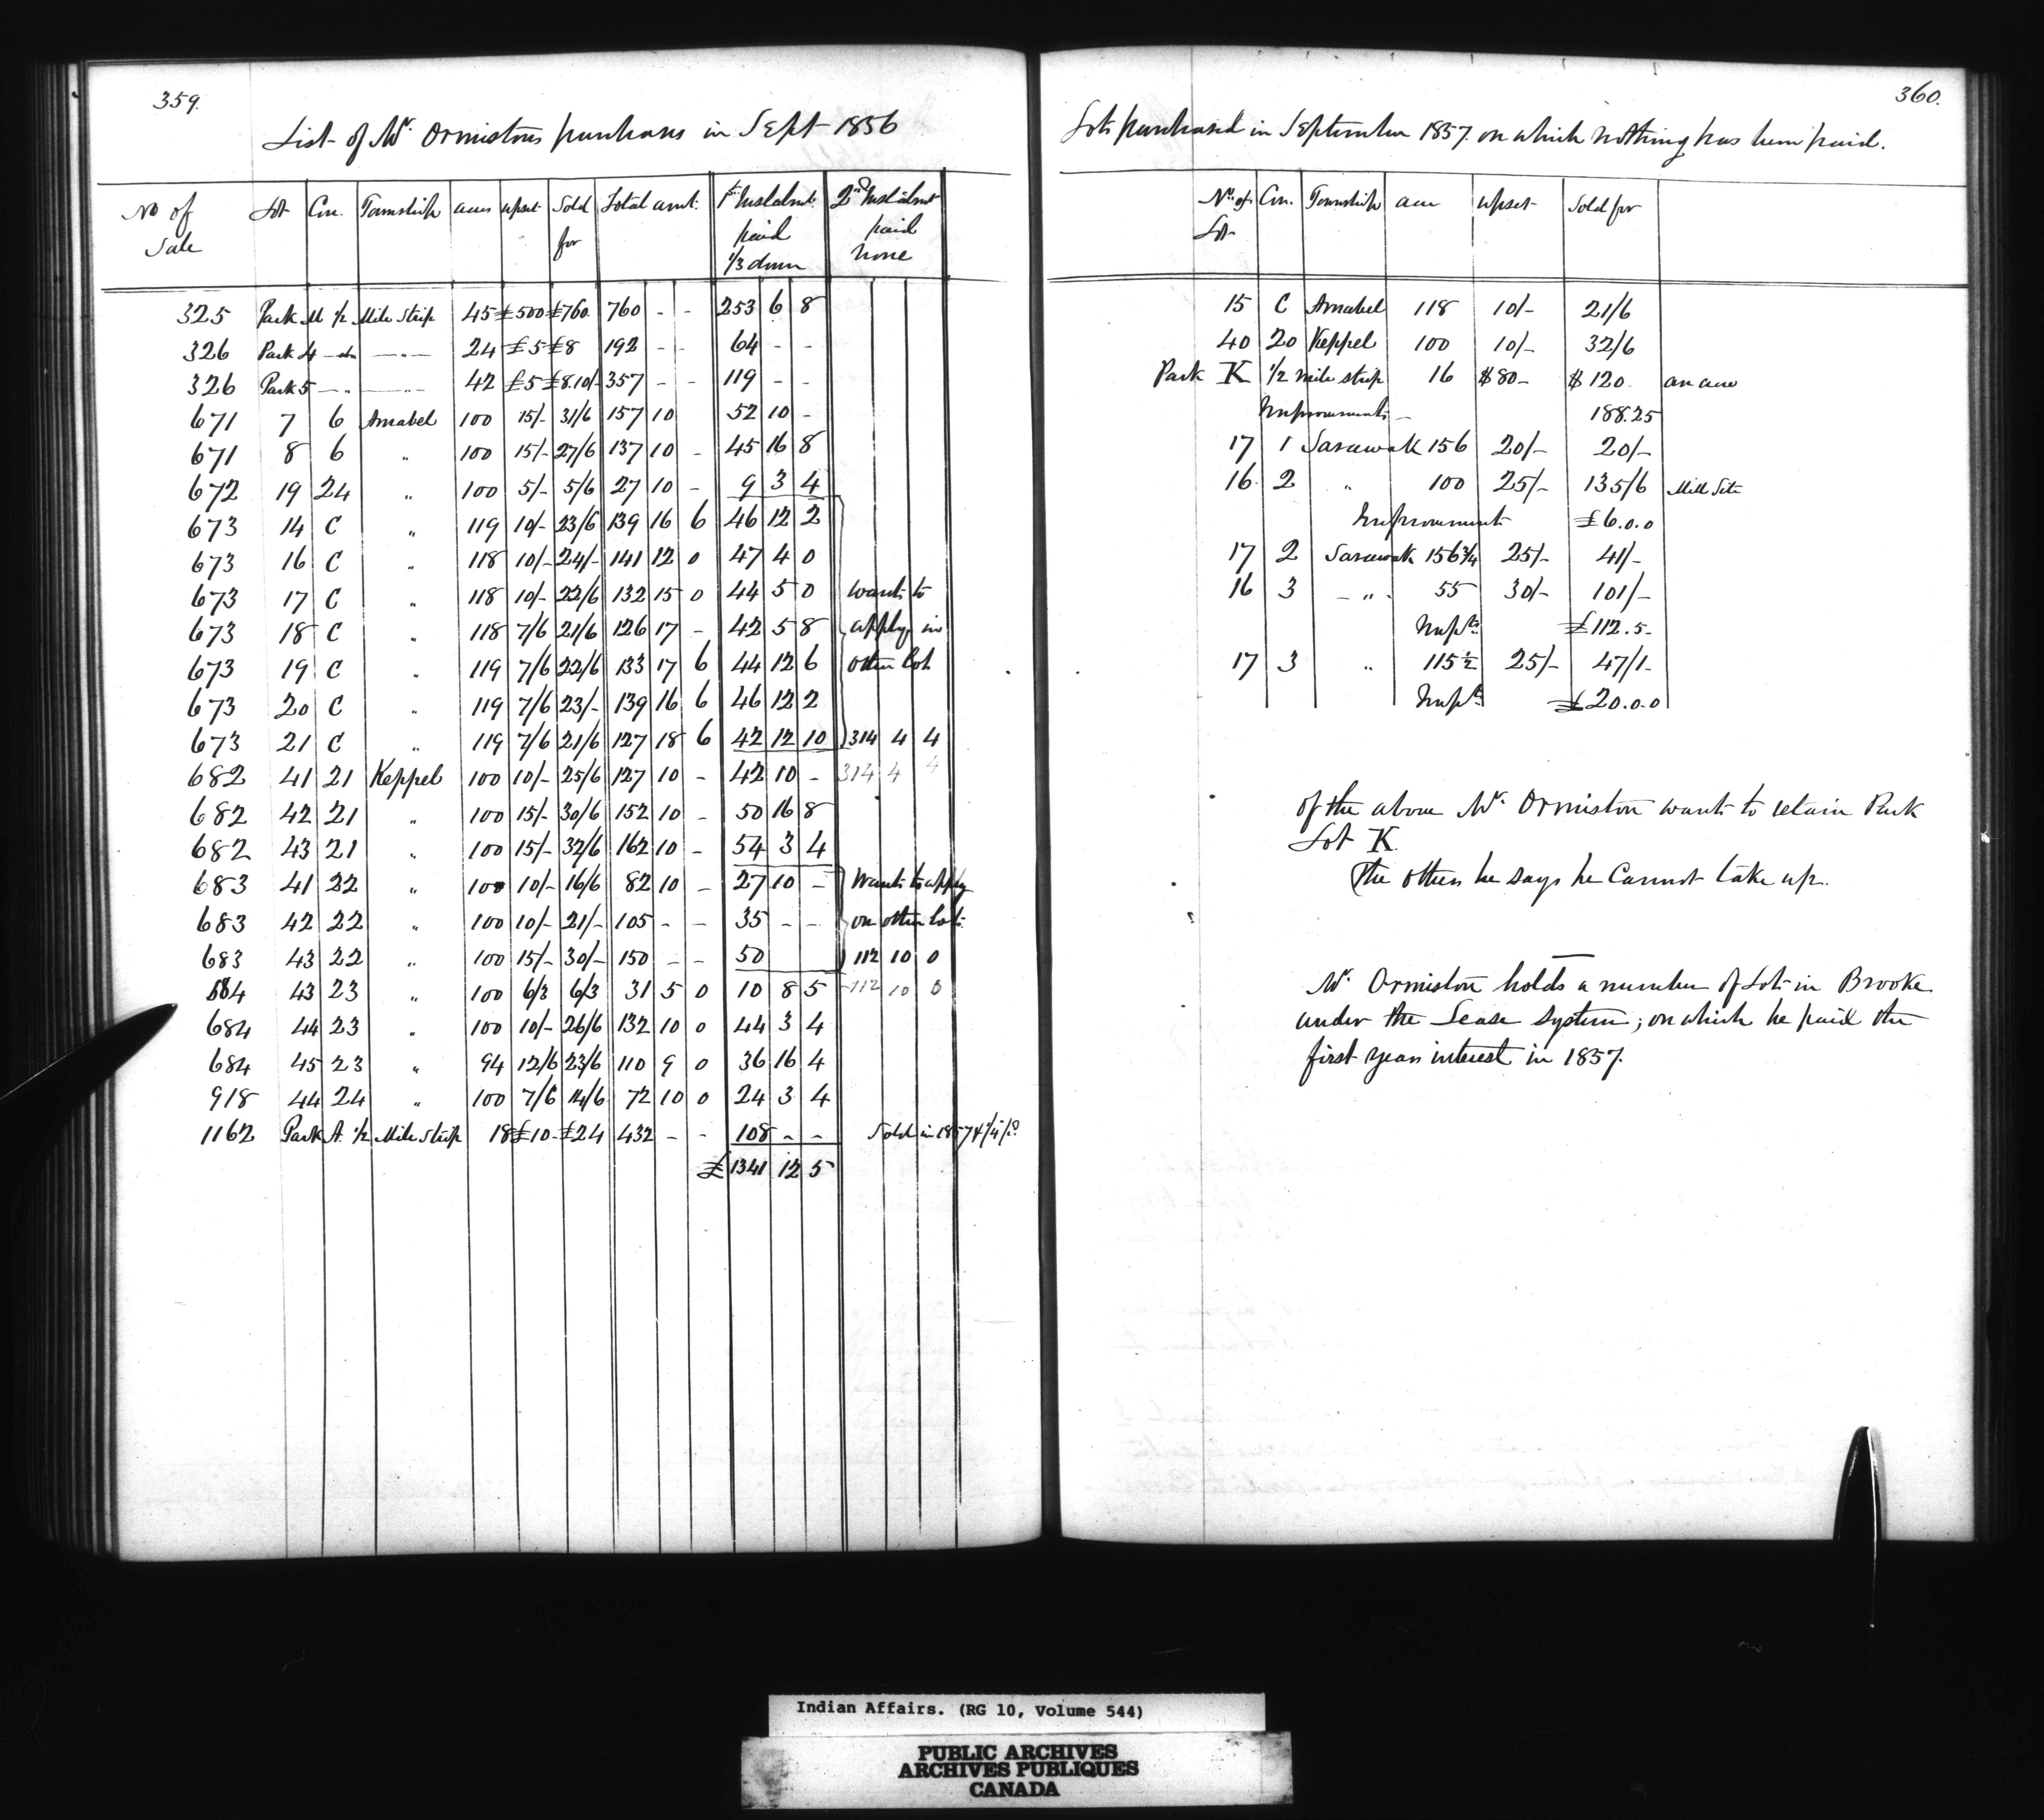 359.
List of Mr. Ormistons purchases in Sept 1856
No of Sale | Lot | Con. | Township | acres | upset | Sold for | Total amt. | 1st Instalmt. paid 1/3 down | 2nd Instalmt paid none
325 Park M 1/2 Mile Strip 45 £500 £760 760 - - 253 6 8
326 Park 4 - do - " - 24 £5 £8 192 - - 64 - -
326 Park 5 - " - - " - 42 £5 £8.10/- 357 - - 119 - -
671 7 6 Amabel 100 15/- 31/6 157 10 52 10 -
671 8 6 " 100 15/- 27/6 137 10 - 45 16 8
672 19 24 " 100 5/- 5/6 27 10 - 9 3 4
673 14 C " 119 10/- 23/6 139 16 6 46 12 2
673 16 C " 118 10/- 24/- 141 12 0 47 4 0
673 17 C " 118 10/- 22/6 132 15 0 44 5 0 wants to
673 18 C " 118 7/6 21/6 126 17 - 42 5 8 apply in
673 19 C " 119 7/6 22/6 133 17 6 44 12 6 other Lots
673 20 C " 119 7/6 23/- 139 16 6 46 12 2
673 21 C " 119 7/6 21/6 127 18 6 42 12 10 314 4 4
682 41 21 Keppel 100 10/- 25/6 127 10 - 42 10 - 314 4 4
682 42 21 " 100 15/- 30/6 152 10 - 50 16 8
682 43 21 " 100 15/- 32/6 162 10 - 54 3 4
683 41 22 " 100 10/- 16/6 82 10 - 27 10 - Wants to apply
683 42 22 " 100 10/- 21/- 105 - - 35 - - on other Lots
683 43 22 " 100 15/- 30/- 150 - - 50 112 10 0
684 43 23 " 100 6/3 6/3 31 5 0 10 8 5 112 10 0
684 44 23 " 100 10/- 26/6 132 10 0 44 3 4
684 45 23 " 94 12/6 23/6 110 9 0 36 16 4
918 44 24 " 100 7/6 14/6 72 10 0 24 3 4
1162 Park A. 1/2 Mile Strip 18 £10- £24 432 - - 108 - - Sold in 1857
£1341 12 5
360.
Lots purchased in September 1857 on which nothing has been paid.
No. of Lot | Con. | Township | acre | upset | Sold for
15 C Amabel 118 10/- 21/6
40 20 Keppel 100 10/- 32/6
Park K 1/2 mile strip 16 $80- $120. an acre
Improvements - 188.25
17 1 Sarawak 156 20/- 20/-
16 2 " 100 25/- 135/6 Mill Site
Improvements £6.0.0
17 2 Sarawak 156 3/4 25/- 41/-
16 3 - " - 55 30/- 101/-
Impts. £112.5-
17 3 " 115 1/2 25/- 47/1-
Impts. £20.0.0
of the above Mr. Ormiston wants to retain Park
Lot K.
The others he says he Cannot take up.
Mr. Ormiston holds a number of Lots in Brooke
under the Lease System; on which he paid the
first years interest in 1857.
Indian Affairs. (RG 10, Volume 544)
PUBLIC ARCHIVES
ARCHIVES PUBLIQUES
CANADA